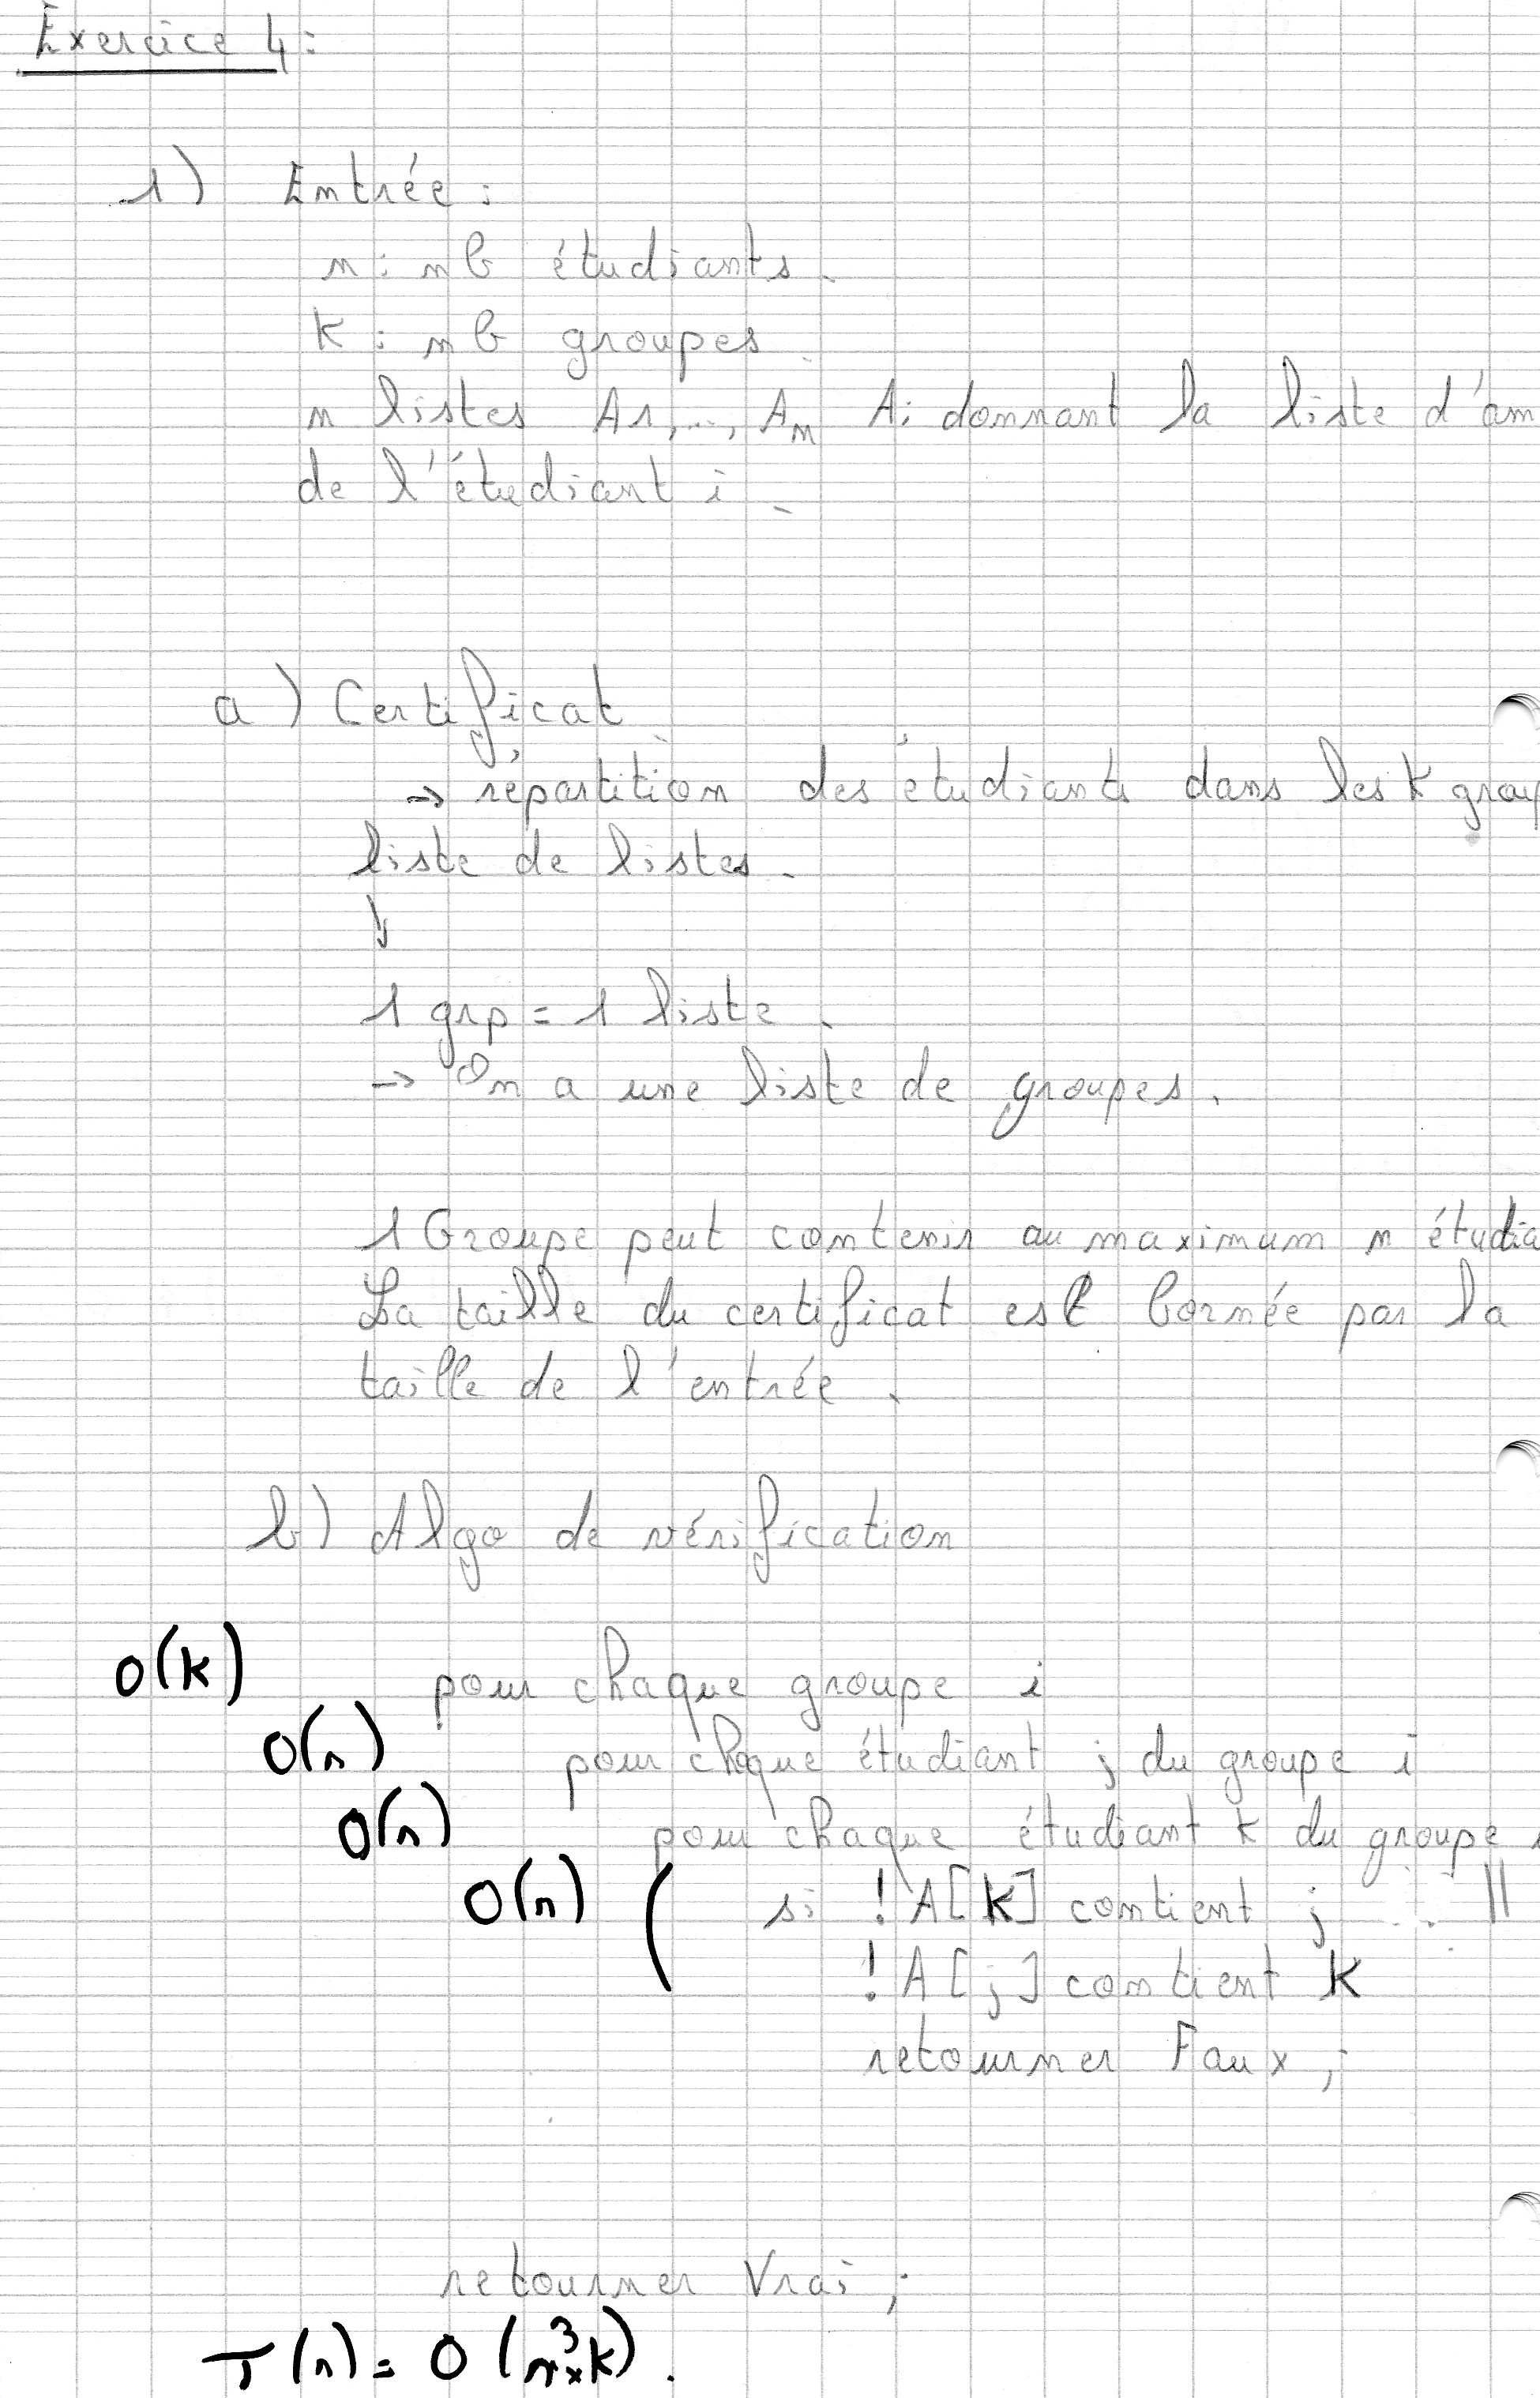 Exercice 4:
1) Entrée:
n: nb étudiants.
K: nb groupes.
n listes A1,..., An Ai donnant la liste d'am
de l'étudiant i.
a) Certificat
→ répartition des étudiants dans les k group
liste de listes.
↓
1 grp = 1 liste.
→ On a une liste de groupes.
1 Groupe peut contenir au maximum n étudia
La taille du certificat est bornée par la
taille de l'entrée.
b) Algo de vérification
O(k) pour chaque groupe i
O(n) pour chaque étudiant j du groupe i
O(n) pour chaque étudiant k du groupe i
O(n) ( si !A[K] contient j ||
!A[j] contient K
retourner Faux;
retourner Vrai;
T(n) = O(n³×k).